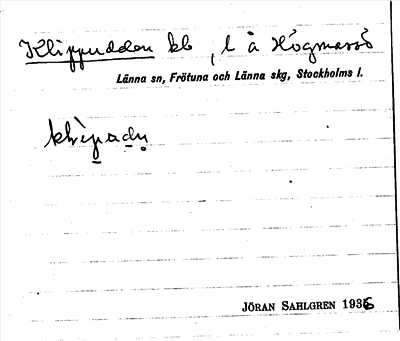 Klippudden kb, l å Högmarsö
Länna sn, Frötuna och Länna skg, Stockholms l.
klìpudn
JÖRAN SAHLGREN 1936